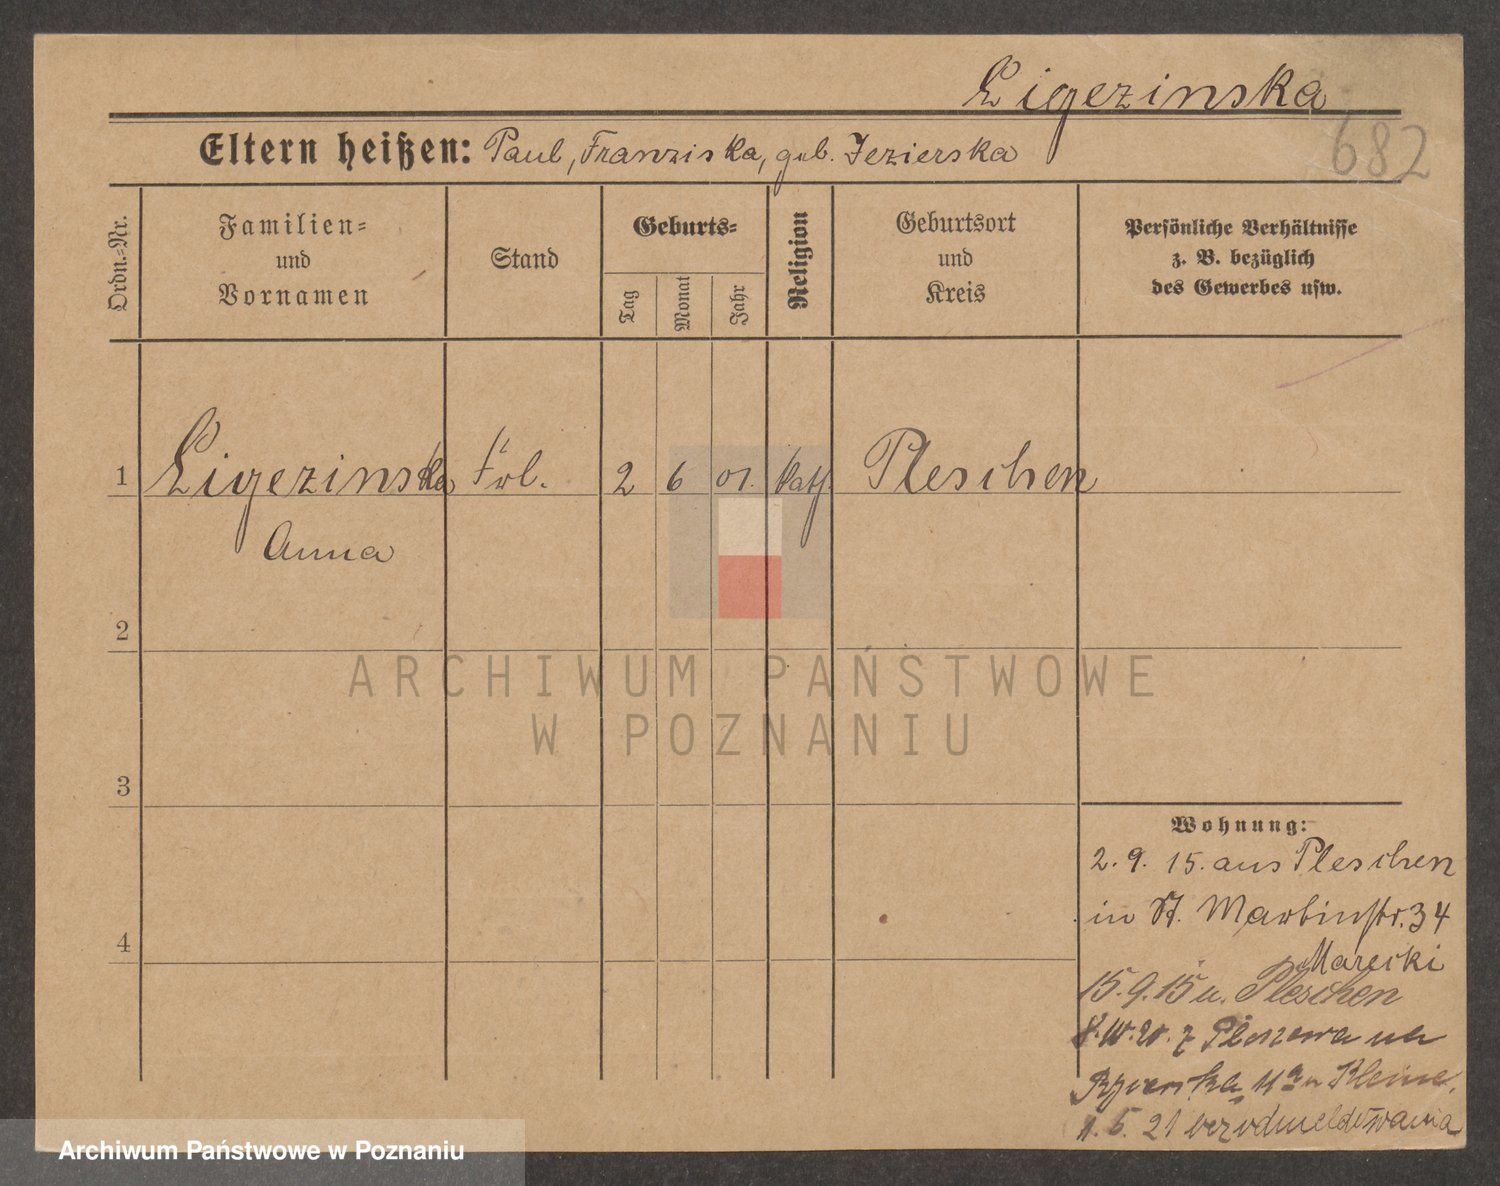 Ligezinska
682
Eltern heißen: Paul, Franziska, geb. Jezierska
Ordn.-Nr.
Familien-
und
Vornamen
Stand
Geburts-
Tag
Monat
Jahr
Religion
Geburtsort
und
Kreis
Persönliche Verhältnisse
z. B. bezüglich
des Gewerbes usw.
1 Ligezinska Frl. 2 6 01. kath. Pleschen
Anna
2
3
4
ARCHIWUM PAŃSTWOWE
W POZNANIU
Wohnung:
2. 9. 15. aus Pleschen
in St. Martinstr. 34
Marecki
15. 9. 15 n. Pleschen
z Pleszewa na
11 u Kleine.
5. 21 bez odmeldowania
Archiwum Państwowe w Poznaniu